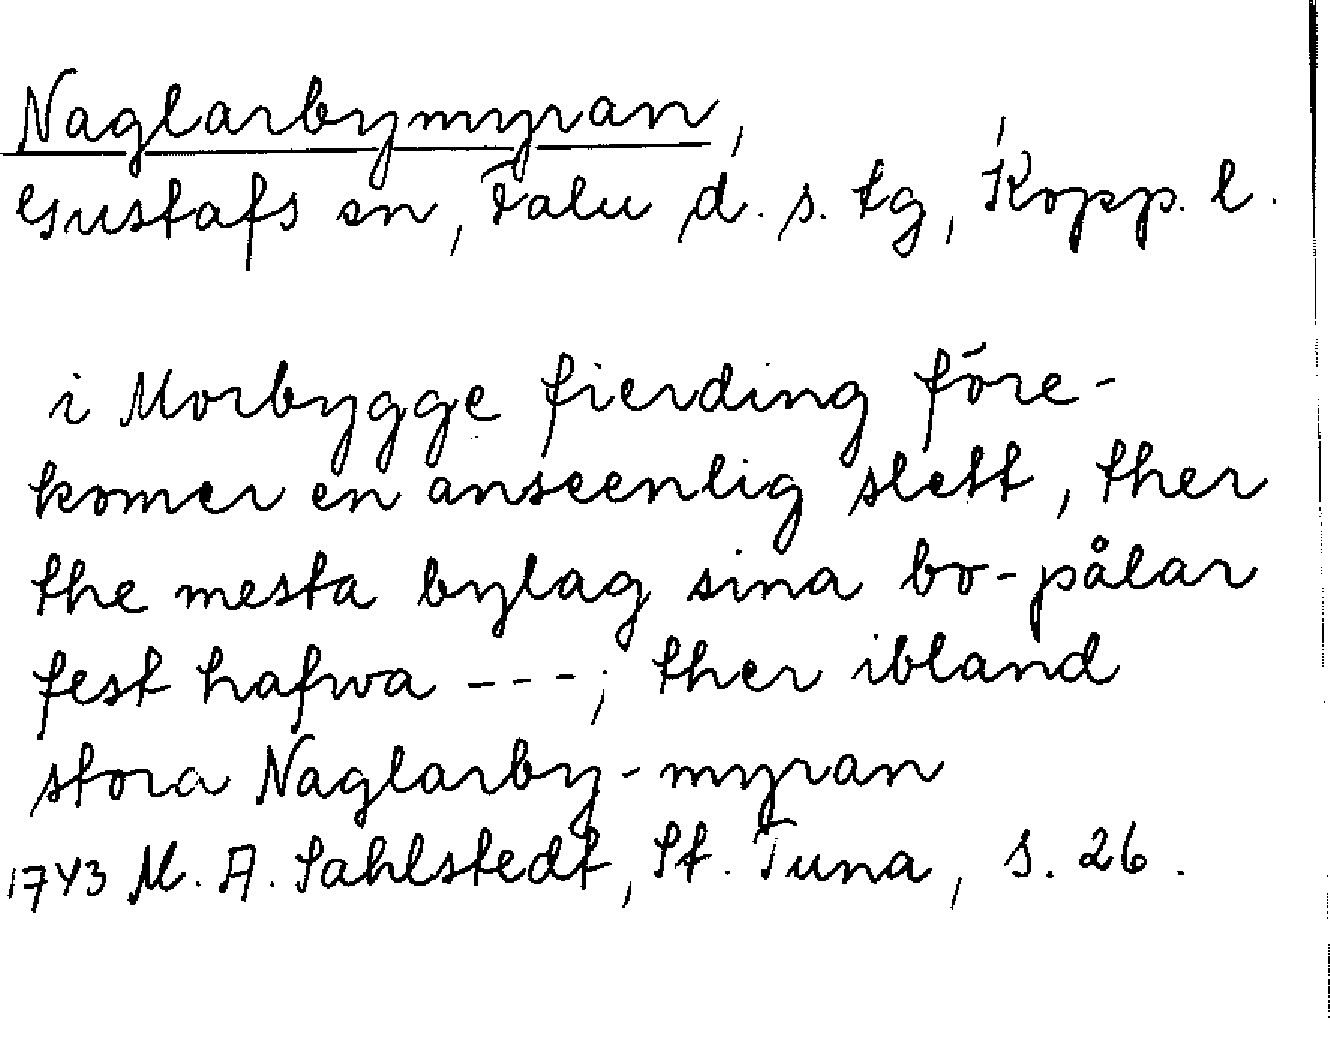 Naglarbymyran,
Gustafs sn, Falu d. s. tg, Kopp. l.
i Morbygge fierding före-
komer en anseenlig slett, ther
the mesta bylag sina bo-pålar
fest hafwa ---; ther ibland
stora Naglarby-myran
1743 M. A. Sahlstedt, St. Tuna, s. 26.